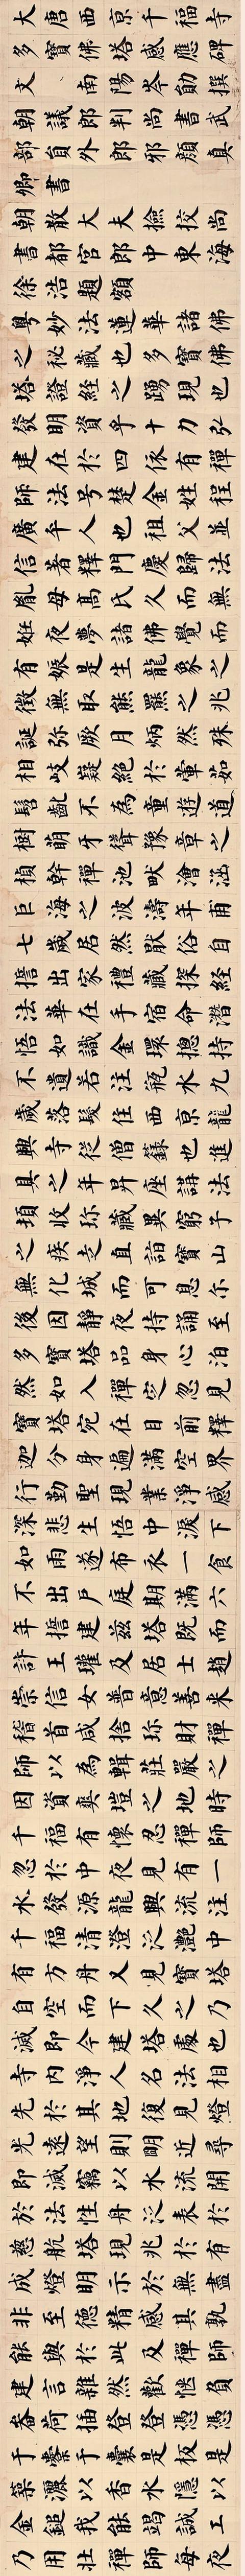 大唐西京千福寺
多寶佛塔感應碑
文南陽岑勛撰
朝議郎判尚書武
部員外郎邪顏真
卿書
朝散大夫撿挍尚
書都官郎中東海
徐浩題額
粵妙法蓮華諸佛
之秘藏也多寶佛
塔證經之踴現也
發明資乎十力弘
建在於四依有禪
師法号楚金姓程
廣平人也祖父並
信著釋門慶歸法
胤母高氏久而無
妊夜夢諸佛覺而
有娠是生龍象之
徵無取熊羆之兆
誕弥厥月炳然殊
相岐嶷絕於葷茹
髫齔不為童遊道
樹萌牙聳豫章之
楨幹禪池畎澮涵
巨海之波濤年甫
七歲居然猒俗自
誓出家禮藏探經
法華在手宿命潛
悟如識金環揔持
不遺若注瓶水九
歲落髮住西京龍
興寺從僧籙也進
具之年昇座講法
頓收珎藏異窮子
之疾走直詣寶山
無化城而可息尓
後因靜夜持誦至
多寶塔品身心泊
然如入禪定忽見
寶塔宛在目前釋
迦分身遍滿空界
行勤聖現業淨感
深悲生悟中淚下
如雨遂布衣一食
不出戶庭期滿六
年誓建茲塔既而
許王瓘及居士趙
崇信女普意善來
稽首咸捨珎財禪
師以為輯莊嚴之
因資爽塏之地時
千福有懷忍禪師
忽於中夜見有一
水發源龍興流注
千福清澄泛灧中
有方舟又見寶塔
自空而下久之乃
滅即今建塔處也
寺內淨人名法相
先於其地復見燈
光遠望則明近尋
即滅竊以水流開
於法性舟泛表於
慈航塔現兆於有
成燈明示於無盡
非至德精感其孰
能與於此及禪師
建言雜然歡愜負
畚荷插登登憑憑
于橐于囊是板是
築灑以香水隱以
金鎚我能竭誠工
乃用壯禪師每夜